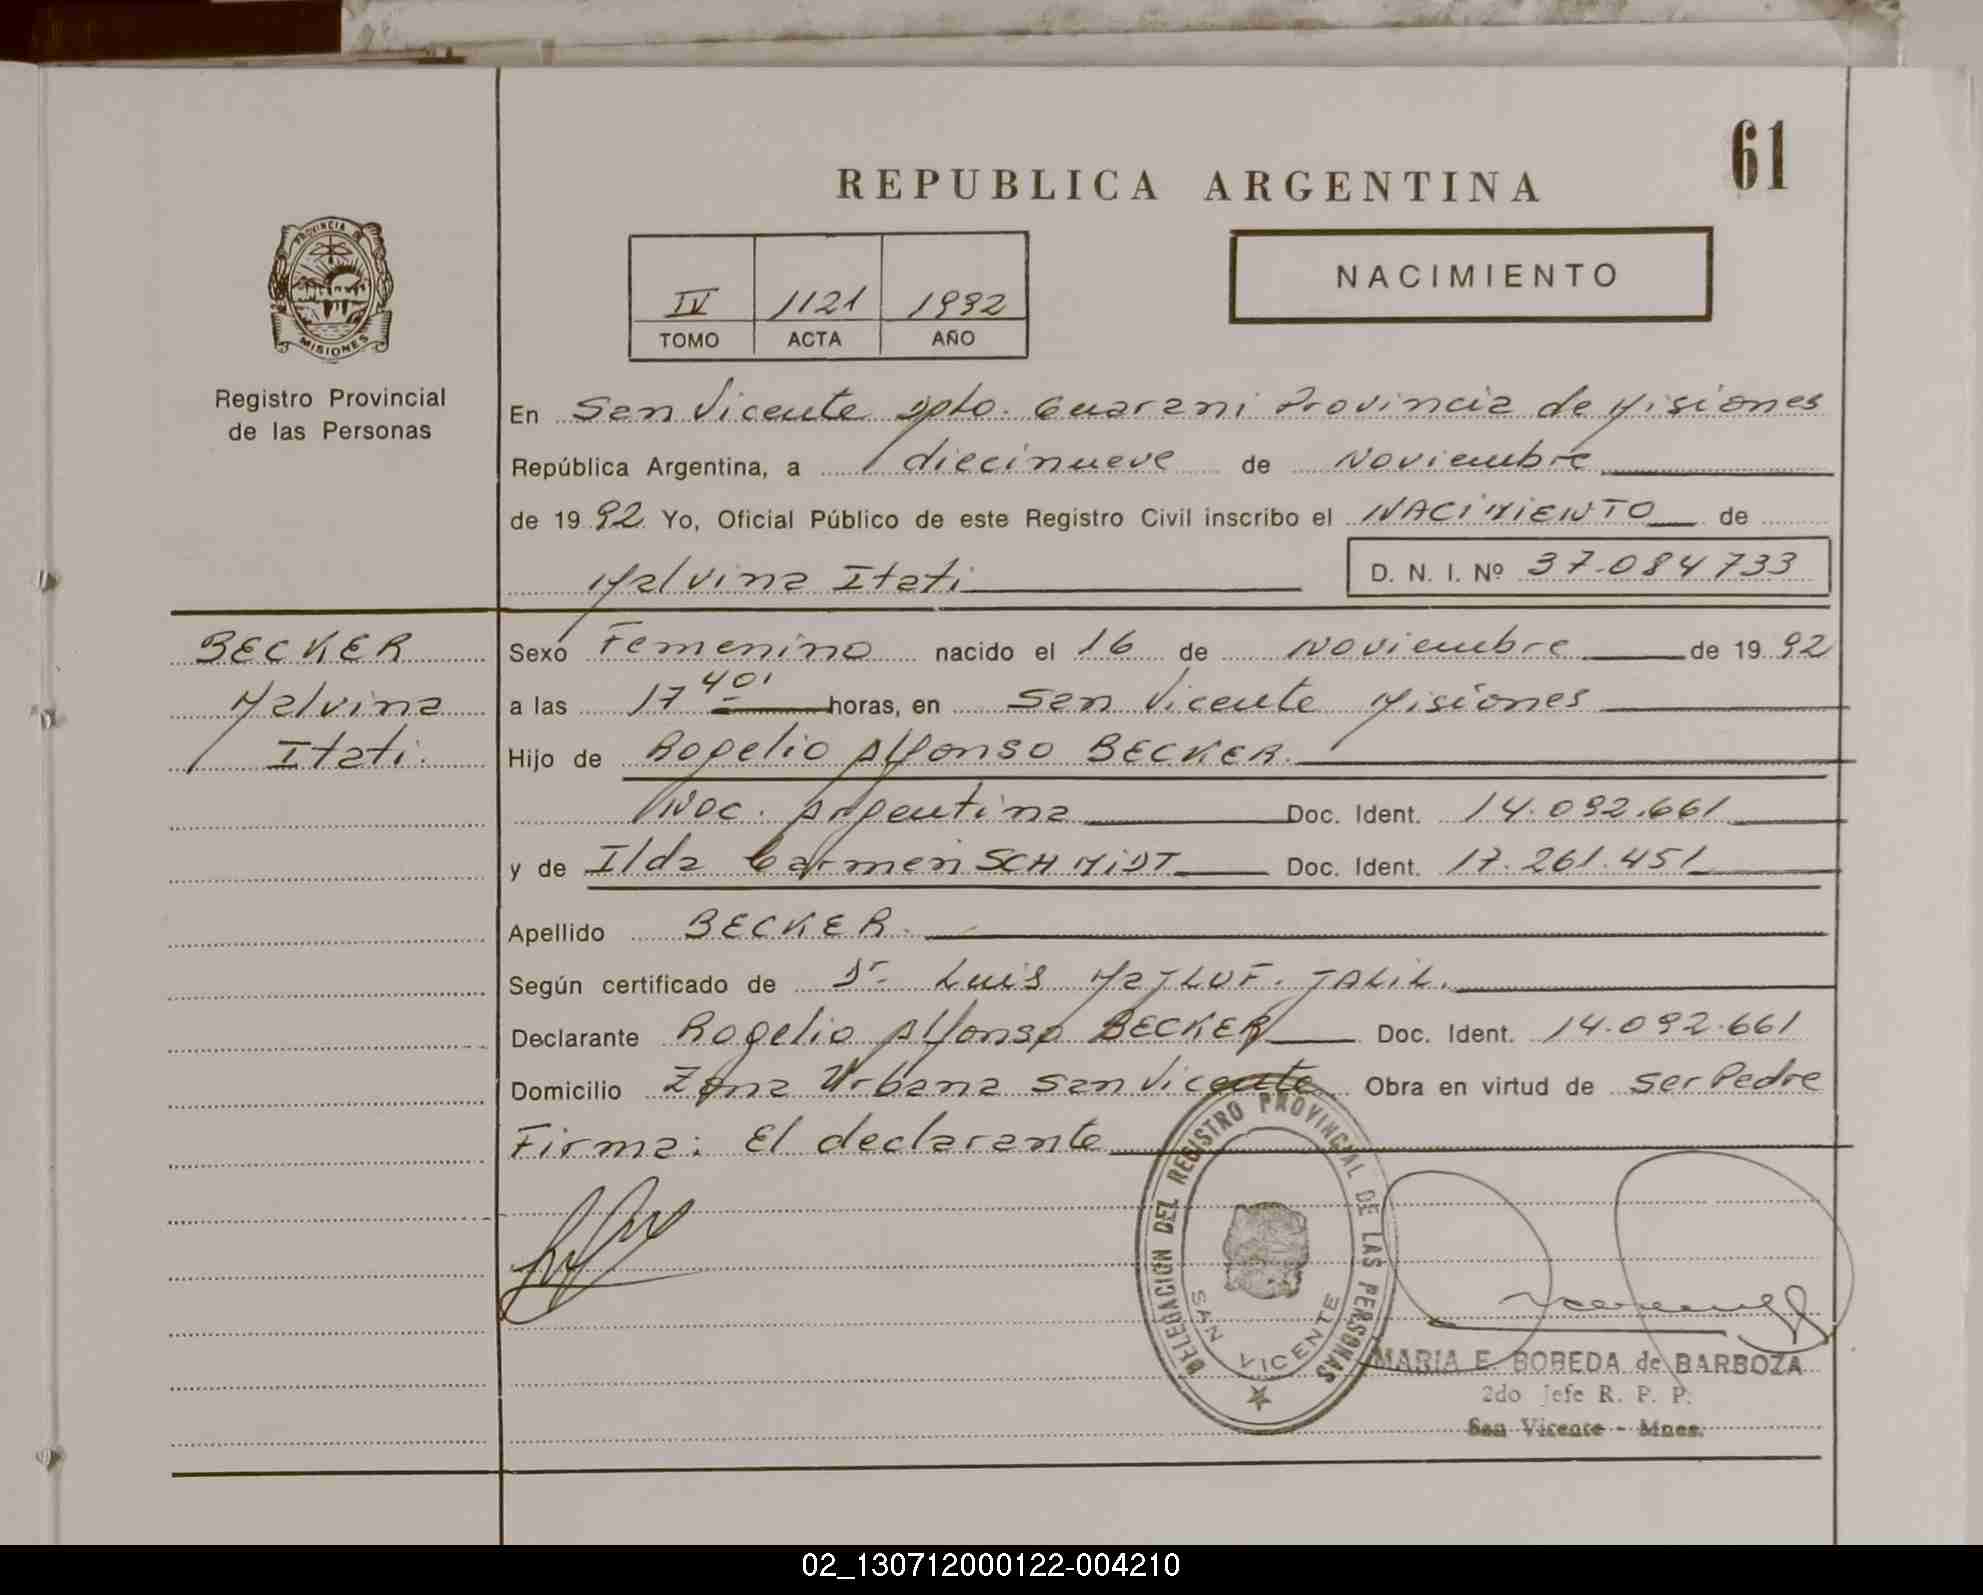 61
REPUBLICA ARGENTINA
PROVINCIA DE
MISIONES
Registro Provincial
de las Personas
IV 1121 1992
TOMO ACTA AÑO
NACIMIENTO
En San Vicente Dpto. Guarani Provincia de Misiones
República Argentina, a diecinueve de Noviembre
de 1992 Yo, Oficial Público de este Registro Civil inscribo el NACIMIENTO de
Malvina Itati D. N. I. Nº 37.084733
BECKER
Malvina
Itati.
Sexo Femenino nacido el 16 de Noviembre de 1992
a las 17 40' horas, en San Vicente Misiones
Hijo de Rogelio Alfonso BECKER.
Nac. Argentina Doc. Ident. 14.092.661
y de Ilda Carmen SCHMIDT Doc. Ident. 17.261.451
Apellido BECKER.
Según certificado de Dr. Luis MaJLUF. JALIL.
Declarante Rogelio Alfonso BECKER Doc. Ident. 14.092.661
Domicilio Zona Urbana San Vicente Obra en virtud de ser Padre
Firma: El declarante
DELEGACION DEL REGISTRO PROVINCIAL DE LAS PERSONAS
SAN VICENTE
MARIA E. BOBEDA de BARBOZA
2do Jefe R. P. P.
San Vicente - Mnes.
02_130712000122-004210